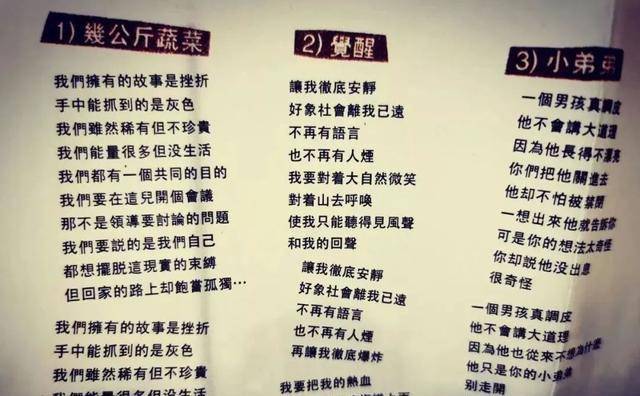 1) 幾公斤蔬菜
我們擁有的故事是挫折
手中能抓到的是灰色
我們雖然稀有但不珍貴
我們能量很多但没生活
我們都有一個共同的目的
我們要在這兒開個會議
那不是領導要討論的問題
我們要説的是我們自己
都想擺脱這現實的束縛
但回家的路上却飽嘗孤獨…
我們擁有的故事是挫折
手中能抓到的是灰色
我們雖然稀有但不珍貴
我們能量很多但没生活
2) 覺醒
讓我徹底安靜
好象社會離我已遠
不再有語言
也不再有人煙
我要對着大自然微笑
對着山去呼唤
使我只能聽得見風聲
和我的回聲
讓我徹底安靜
好象社會離我已遠
不再有語言
也不再有人煙
再讓我徹底爆炸
我要把我的熱血
3) 小弟弟
一個男孩真調皮
他不會講大道理
因為他長得不漂亮
你們把他關進去
他却不怕被禁閉
一想出來他就告訴你
可是你的想法太奇怪
你却説他没出息
很奇怪
一個男孩真調皮
他不會講大道理
因為他也從來不想為什麽
他只是你的小弟弟
别走開